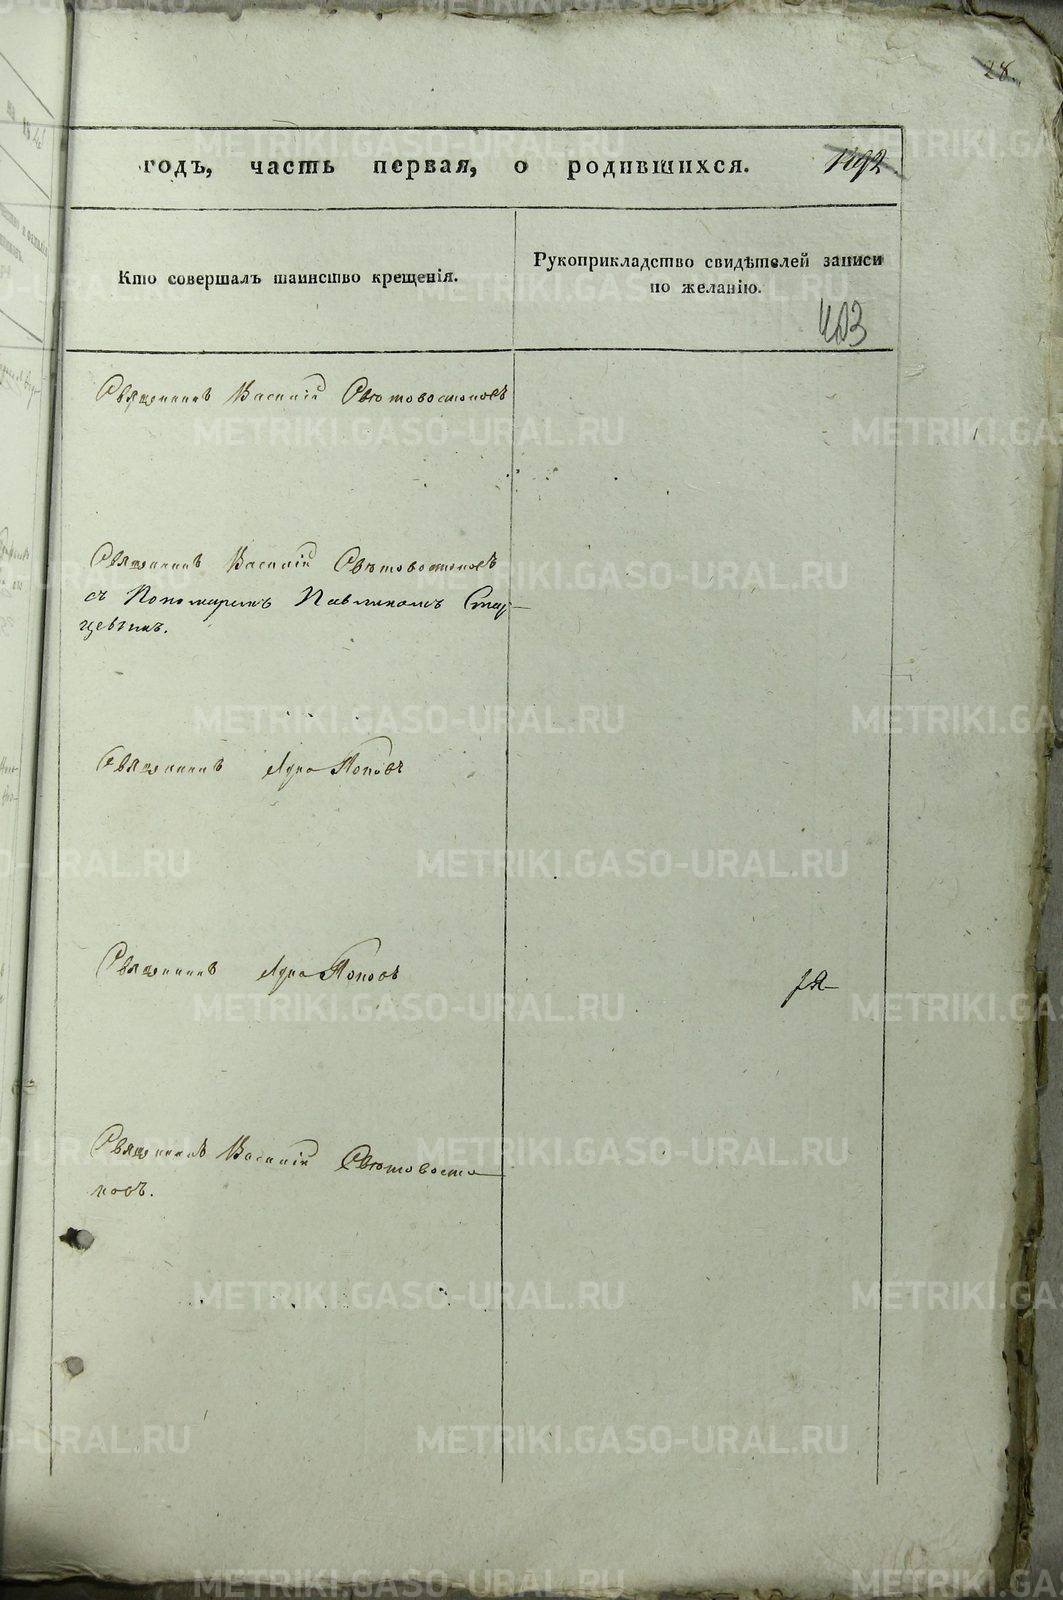 28.
годъ, часть первая, о родившихся.
1192
Кто совершалъ таинство крещенія.
Рукоприкладство свидѣтелей записи
по желанію.
403
Священникъ Василій Свѣтовостоковъ
Священникъ Василій Свѣтовостоковъ
съ Пономаремъ Павлиномъ Стар-
цевымъ.
Священникъ Поповъ
Священникъ Поповъ
Священникъ Василій Свѣтовосто
ковъ.
METRIKI.GASO-URAL.RU